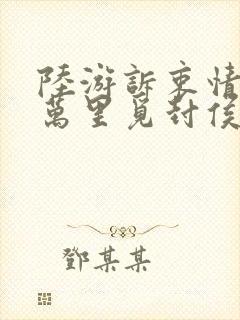 陸游訴衷情
萬里覓封侯
鄧某某